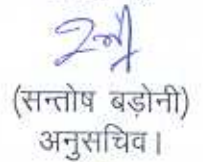 (सन्तोष बड़ोनी)
अनुसचिव।